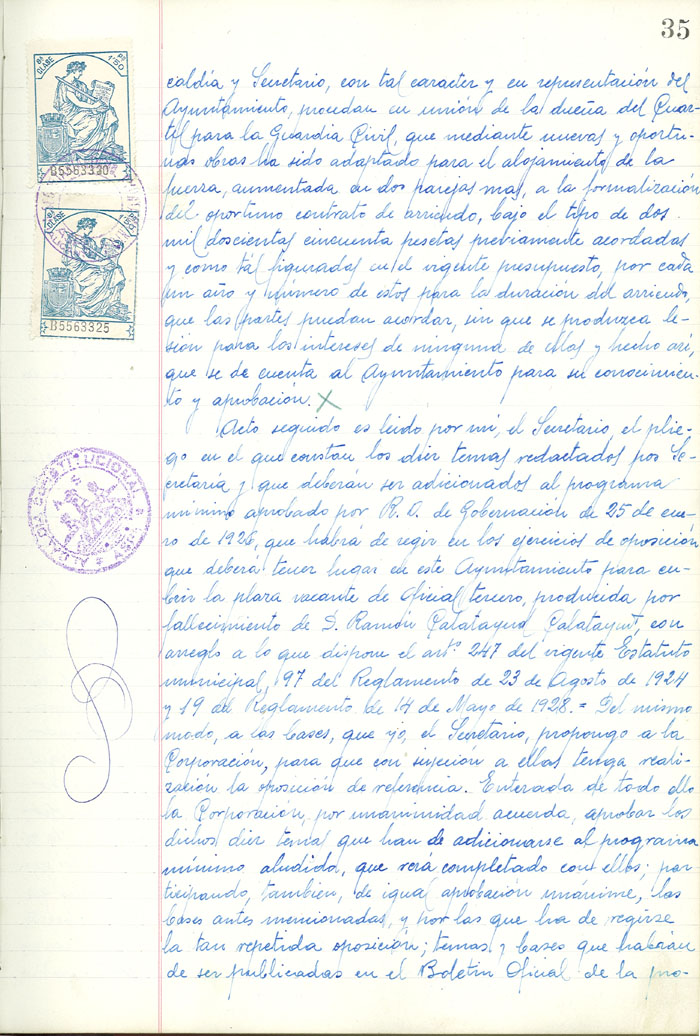 35
8ª CLASE
1'50 Pts
B5563330
8ª CLASE
1'50
B5563325
ALCALDIA CONSTITUCIONAL
caldía y Secretario, con tal caracter y en representación del
Ayuntamiento, procedan en unión de la dueña del Cuar-
tel para la Guardia Civil, que mediante nuevas y oportu-
nas obras ha sido adaptado para el alojamiento de la
fuerza, aumentada en dos parejas mas, a la formalización
del oportuno contrato de arriendo, bajo el tipo de dos
mil doscientas cincuenta pesetas previamente acordadas
y como tal figuradas en el vigente presupuesto, por cada
un año y número de estos para la duración del arriendo,
que las partes puedan acordar, sin que se produzca le-
sión para los intereses de ninguna de ellas y hecho asi,
que se de cuenta al Ayuntamiento para su conocimien-
to y aprobación. X
Acto seguido es leido por mi, el Secretario, el plie-
go en el que constan los diez temas redactados por Se-
cretaría y que deberán ser adicionados al programa
mínimo aprobado por R. O. de Gobernación de 25 de ene-
ro de 1926, que habrá de regir en los ejercicios de oposición
que deberá tener lugar en este Ayuntamiento para cu-
brir la plaza vacante de Oficial tercero, producida por
fallecimiento de D. Ramón Calatayud Calatayud, con
arreglo a lo que dispone el artº 247 del vigente Estatuto
municipal, 97 del Reglamento de 23 de Agosto de 1924
y 19 del Reglamento de 14 de Mayo de 1928. = Del mismo
modo, a las bases, que yo, el Secretario, propongo a la
Corporación, para que con sujeción a ellas tenga reali-
zación la oposición de referencia. Enterada de todo ello
la Corporación, por unanimidad acuerda, aprobar los
dichos diez temas que han de adicionarse al programa
mínimo aludido, que será completado con ellos; par-
ticipando, tambien, de igual aprobación unánime, las
bases antes mencionadas, y por las que ha de regirse
la tan repetida oposición; temas y bases que habrán
de ser publicadas en el Boletin Oficial de la pro-